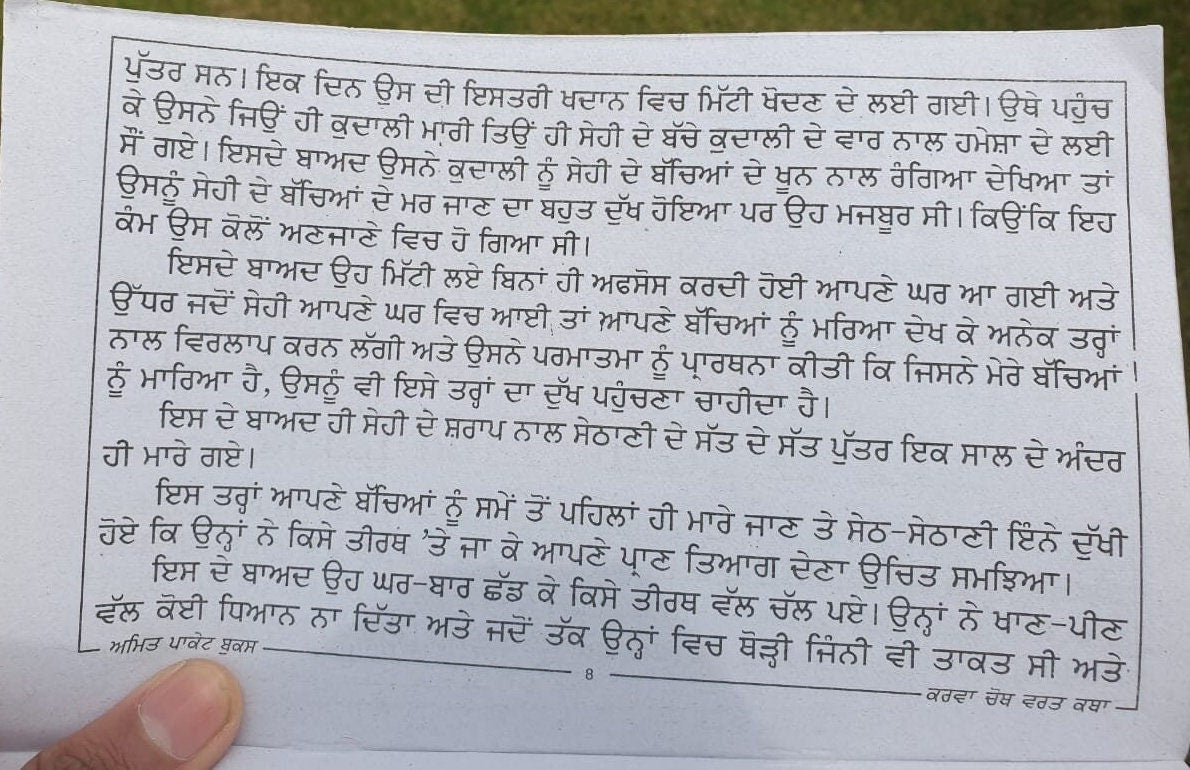 ਪੁੱਤਰ ਸਨ। ਇਕ ਦਿਨ ਉਸ ਦੀ ਇਸਤਰੀ ਖਦਾਨ ਵਿਚ ਮਿੱਟੀ ਖੋਦਣ ਦੇ ਲਈ ਗਈ। ਉਥੇ ਪਹੁੰਚ
ਕੇ ਉਸਨੇ ਜਿਉਂ ਹੀ ਕੁਦਾਲੀ ਮਾਰੀ ਤਿਉਂ ਹੀ ਸੇਹੀ ਦੇ ਬੱਚੇ ਕੁਦਾਲੀ ਦੇ ਵਾਰ ਨਾਲ ਹਮੇਸ਼ਾ ਦੇ ਲਈ
ਸੌਂ ਗਏ। ਇਸਦੇ ਬਾਅਦ ਉਸਨੇ ਕੁਦਾਲੀ ਨੂੰ ਸੇਹੀ ਦੇ ਬੱਚਿਆਂ ਦੇ ਖੂਨ ਨਾਲ ਰੰਗਿਆ ਦੇਖਿਆ ਤਾਂ
ਉਸਨੂੰ ਸੇਹੀ ਦੇ ਬੱਚਿਆਂ ਦੇ ਮਰ ਜਾਣ ਦਾ ਬਹੁਤ ਦੁੱਖ ਹੋਇਆ ਪਰ ਉਹ ਮਜਬੂਰ ਸੀ। ਕਿਉਂਕਿ ਇਹ
ਕੰਮ ਉਸ ਕੋਲੋਂ ਅਣਜਾਣੇ ਵਿਚ ਹੋ ਗਿਆ ਸੀ।
ਇਸਦੇ ਬਾਅਦ ਉਹ ਮਿੱਟੀ ਲਏ ਬਿਨਾਂ ਹੀ ਅਫਸੋਸ ਕਰਦੀ ਹੋਈ ਆਪਣੇ ਘਰ ਆ ਗਈ ਅਤੇ
ਉੱਧਰ ਜਦੋਂ ਸੇਹੀ ਆਪਣੇ ਘਰ ਵਿਚ ਆਈ ਤਾਂ ਆਪਣੇ ਬੱਚਿਆਂ ਨੂੰ ਮਰਿਆ ਦੇਖ ਕੇ ਅਨੇਕ ਤਰ੍ਹਾਂ
ਨਾਲ ਵਿਰਲਾਪ ਕਰਨ ਲੱਗੀ ਅਤੇ ਉਸਨੇ ਪਰਮਾਤਮਾ ਨੂੰ ਪ੍ਰਾਰਥਨਾ ਕੀਤੀ ਕਿ ਜਿਸਨੇ ਮੇਰੇ ਬੱਚਿਆਂ
ਨੂੰ ਮਾਰਿਆ ਹੈ, ਉਸਨੂੰ ਵੀ ਇਸੇ ਤਰ੍ਹਾਂ ਦਾ ਦੁੱਖ ਪਹੁੰਚਣਾ ਚਾਹੀਦਾ ਹੈ।
ਇਸ ਦੇ ਬਾਅਦ ਹੀ ਸੇਹੀ ਦੇ ਸ਼ਰਾਪ ਨਾਲ ਸੇਠਾਣੀ ਦੇ ਸੱਤ ਦੇ ਸੱਤ ਪੁੱਤਰ ਇਕ ਸਾਲ ਦੇ ਅੰਦਰ
ਹੀ ਮਾਰੇ ਗਏ।
ਇਸ ਤਰ੍ਹਾਂ ਆਪਣੇ ਬੱਚਿਆਂ ਨੂੰ ਸਮੇਂ ਤੋਂ ਪਹਿਲਾਂ ਹੀ ਮਾਰੇ ਜਾਣ ਤੇ ਸੇਠ-ਸੇਠਾਣੀ ਇੰਨੇ ਦੁੱਖੀ
ਹੋਏ ਕਿ ਉਨ੍ਹਾਂ ਨੇ ਕਿਸੇ ਤੀਰਥ 'ਤੇ ਜਾ ਕੇ ਆਪਣੇ ਪ੍ਰਾਣ ਤਿਆਗ ਦੇਣਾ ਉਚਿਤ ਸਮਝਿਆ।
ਇਸ ਦੇ ਬਾਅਦ ਉਹ ਘਰ-ਬਾਰ ਛੱਡ ਕੇ ਕਿਸੇ ਤੀਰਥ ਵੱਲ ਚੱਲ ਪਏ। ਉਨ੍ਹਾਂ ਨੇ ਖਾਣ-ਪੀਣ
ਵੱਲ ਕੋਈ ਧਿਆਨ ਨਾ ਦਿੱਤਾ ਅਤੇ ਜਦੋਂ ਤੱਕ ਉਨ੍ਹਾਂ ਵਿਚ ਥੋੜ੍ਹੀ ਜਿੰਨੀ ਵੀ ਤਾਕਤ ਸੀ ਅਤੇ
ਅਮਿਤ ਪਾਕੇਟ ਬੁਕਸ
8
ਕਰਵਾ ਚੋਥ ਵਰਤ ਕਥਾ